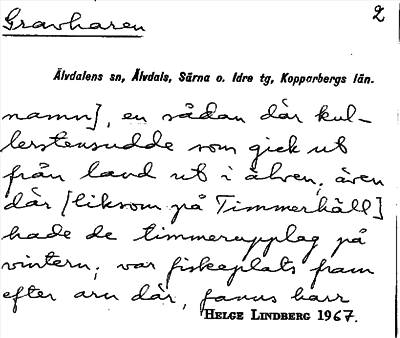 Gravharen
2
Älvdalens sn, Älvdals, Särna o. Idre tg, Kopparbergs län.
namn], en sådan där kul-
lerstensudde som gick ut
från land ut i älven; även
där [liksom på Timmerhäll]
hade de timmerupplag på
vintern; var fiskeplats fram
efter arn där, fanns harr
HELGE LINDBERG 1967.